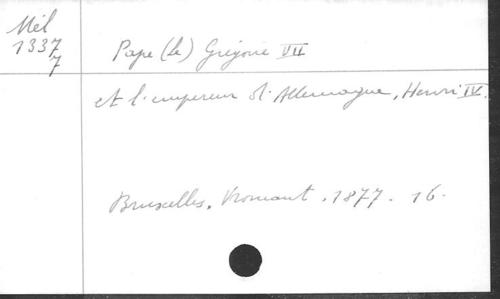 Mél
1337
7
Pape (Le) Grégoire VII
et l'empereur d'Allemagne, Henri IV.
Bruxelles, Vromant, 1877. 16.